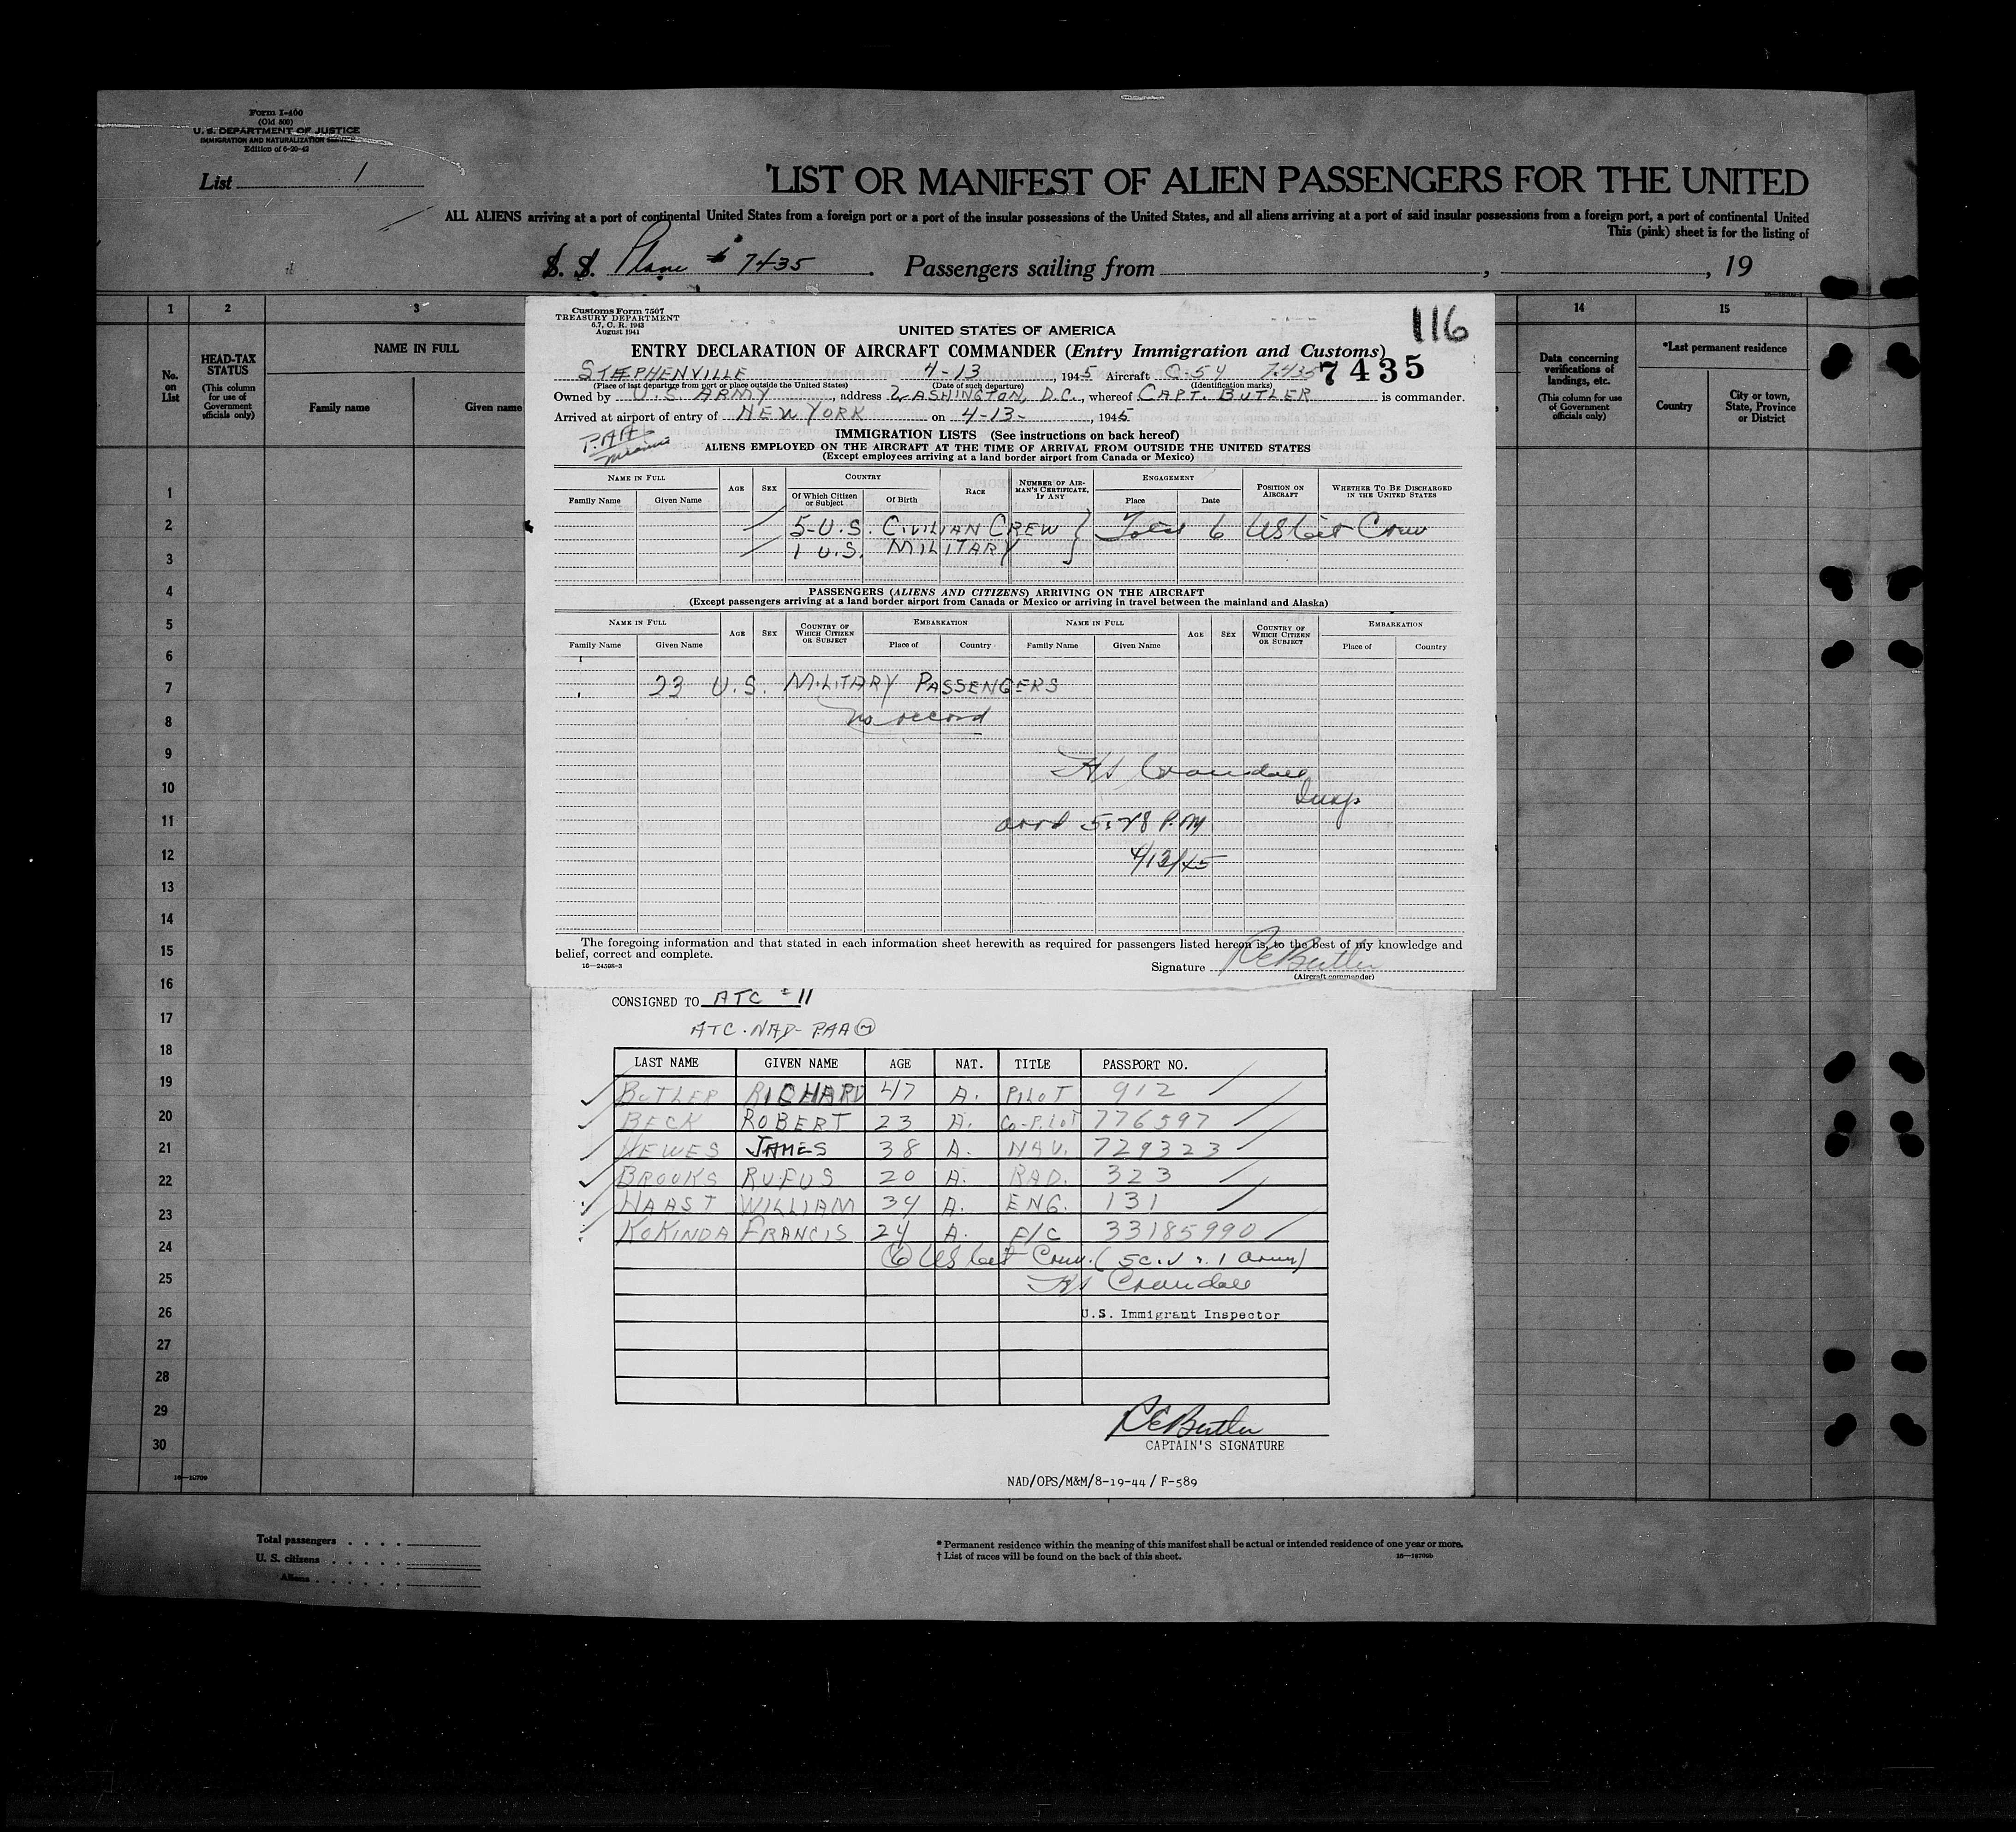 Form I-400
(Old 500)
U. S. DEPARTMENT OF JUSTICE
IMMIGRATION AND NATURALIZATION SERVICE
Edition of 6-20-42
List 1
LIST OR MANIFEST OF ALIEN PASSENGERS FOR THE UNITED
ALL ALIENS arriving at a port of continental United States from a foreign port or a port of the insular possessions of the United States, and all aliens arriving at a port of said insular possessions from a foreign port, a port of continental United
This (pink) sheet is for the listing of
S. S. Plane # 7435. Passengers sailing from , , 19
1 2 3 14 15
No. on List
HEAD-TAX STATUS
(This column for use of Government officials only)
NAME IN FULL
Family name Given name
Data concerning verifications of landings, etc.
(This column for use of Government officials only)
*Last permanent residence
Country City or town, State, Province or District
Customs Form 7507
TREASURY DEPARTMENT
6.7, C. R. 1943
August 1941
116
UNITED STATES OF AMERICA
ENTRY DECLARATION OF AIRCRAFT COMMANDER (Entry Immigration and Customs)
STEPHENVILLE 4-13, 1945 Aircraft C-54 7435 7435
(Place of last departure from port or place outside the United States) (Date of such departure) (Identification marks)
Owned by U.S. ARMY, address WASHINGTON, D.C., whereof CAPT. BUTLER is commander.
Arrived at airport of entry of NEW YORK on 4-13-, 1945
P.A.A.
IMMIGRATION LISTS (See instructions on back hereof)
ALIENS EMPLOYED ON THE AIRCRAFT AT THE TIME OF ARRIVAL FROM OUTSIDE THE UNITED STATES
(Except employees arriving at a land border airport from Canada or Mexico)
NAME IN FULL AGE SEX COUNTRY RACE NUMBER OF AIRMAN'S CERTIFICATE, IF ANY ENGAGEMENT POSITION ON AIRCRAFT WHETHER TO BE DISCHARGED IN THE UNITED STATES
Family Name Given Name Of Which Citizen or Subject Of Birth Place Date
5-U.S. CIVILIAN CREW } Total 6 US Cit Crew
1 U.S. MILITARY
PASSENGERS (ALIENS AND CITIZENS) ARRIVING ON THE AIRCRAFT
(Except passengers arriving at a land border airport from Canada or Mexico or arriving in travel between the mainland and Alaska)
NAME IN FULL AGE SEX COUNTRY OF WHICH CITIZEN OR SUBJECT EMBARKATION NAME IN FULL AGE SEX COUNTRY OF WHICH CITIZEN OR SUBJECT EMBARKATION
Family Name Given Name Place of Country Family Name Given Name Place of Country
23 U.S. MILITARY PASSENGERS
no record
HS Crandall
Insp.
arrd 5:28 P.M
4/13/45
The foregoing information and that stated in each information sheet herewith as required for passengers listed hereon is, to the best of my knowledge and
belief, correct and complete.
16—24598-3
Signature RE Butler
(Aircraft commander)
CONSIGNED TO ATC # 11
ATC. NAD- PAA
LAST NAME GIVEN NAME AGE NAT. TITLE PASSPORT NO.
BUTLER RICHARD 47 A. PILOT 912
BECK ROBERT 23 A. CO-PILOT 776597
HEWES JAMES 38 A. NAV. 729323
BROOKS RUFUS 20 A. RAD. 323
HAAST WILLIAM 34 A. ENG. 131
KOKINDA FRANCIS 24 A. F/C 33185990
6 US Cit Crew. (5 Civ. 1 Army)
HS Crandall
U.S. Immigrant Inspector
RE Butler
CAPTAIN'S SIGNATURE
NAD/OPS/M&M/8-19-44 / F-589
1
2
3
4
5
6
7
8
9
10
11
12
13
14
15
16
17
18
19
20
21
22
23
24
25
26
27
28
29
30
Total passengers
U. S. citizens
Aliens
* Permanent residence within the meaning of this manifest shall be actual or intended residence of one year or more.
† List of races will be found on the back of this sheet.